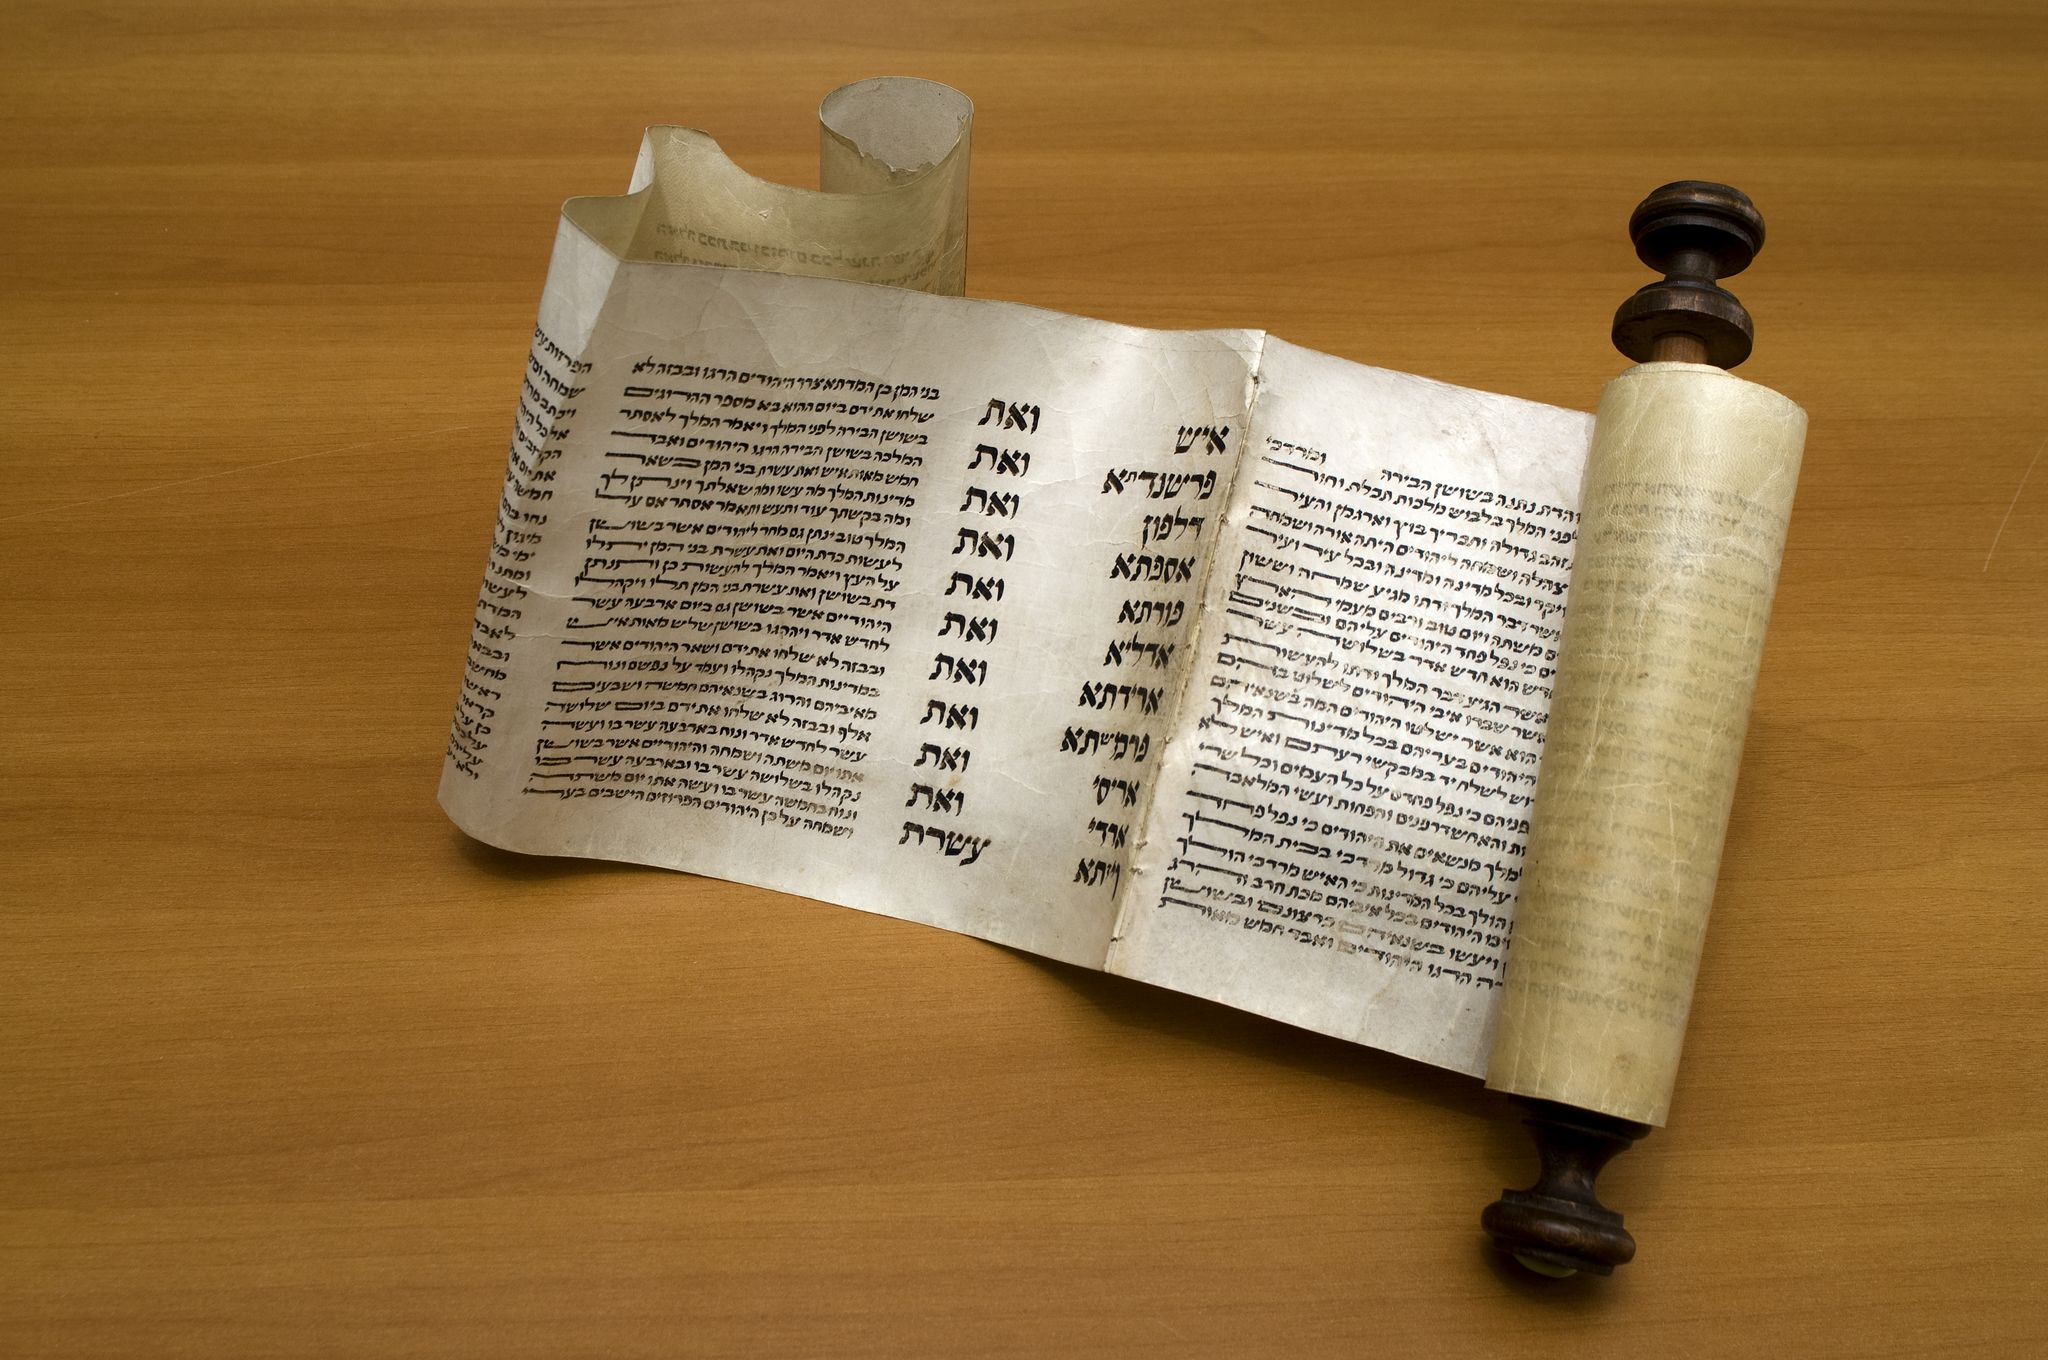 והדת נתנה בשושן הבירה ומרדכי
לפני המלך בלבוש מלכות תכלת וחור
זהב גדולה ותכריך בוץ וארגמן והעיר
צהלה ושמחה ליהודים היתה אורה ושמחה
ויקר ובכל מדינה ומדינה ובכל עיר ועיר
אשר דבר המלך ודתו מגיע שמחה וששון
משתה ויום טוב ורבים מעמי הארץ
כי נפל פחד היהודים עליהם ובשנים
חדש הוא חדש אדר בשלושה עשר
אשר הגיע דבר המלך ודתו להעשות
אשר שברו איבי היהודים לשלוט בהם
הוא אשר ישלטו היהודים המה בשנאיהם
היהודים בעריהם בכל מדינות המלך
לשלח יד במבקשי רעתם ואיש לא
כי נפל פחדם על כל העמים וכל שרי
והאחשדרפנים והפחות ועשי המלאכה
למלך מנשאים את היהודים כי נפל פחד
עליהם כי גדול מרדכי בבית המלך
הולך בכל המדינות כי האיש מרדכי הולך
ויכו היהודים בכל איביהם מכת חרב והרג
ויעשו בשנאיהם כרצונם ובשושן
הרגו היהודים ואבד חמש מאות
איש ואת
פרשנדתא ואת
דלפון ואת
אספתא ואת
פורתא ואת
אדליא ואת
ארידתא ואת
פרמשתא ואת
אריסי ואת
ארדי ואת
ויזתא עשרת
בני המן בן המדתא צרר היהודים הרגו ובבזה לא
שלחו את ידם ביום ההוא בא מספר ההרוגים
בשושן הבירה לפני המלך ויאמר המלך לאסתר
המלכה בשושן הבירה הרגו היהודים ואבד
חמש מאות איש ואת עשרת בני המן בשאר
מדינות המלך מה עשו ומה שאלתך וינתן לך
ומה בקשתך עוד ותעש ותאמר אסתר אם על
המלך טוב ינתן גם מחר ליהודים אשר בשושן
לעשות כדת היום ואת עשרת בני המן יתלו
על העץ ויאמר המלך להעשות כן ותנתן
דת בשושן ואת עשרת בני המן תלו ויקהלו
היהודיים אשר בשושן גם ביום ארבעה עשר
לחדש אדר ויהרגו בשושן שלש מאות איש
ובבזה לא שלחו את ידם ושאר היהודים אשר
במדינות המלך נקהלו ועמד על נפשם ונוח
מאיביהם והרוג בשנאיהם חמשה ושבעים
אלף ובבזה לא שלחו את ידם ביום שלושה
עשר לחדש אדר ונוח בארבעה עשר בו ועשה
אתו יום משתה ושמחה והיהודיים אשר בשושן
נקהלו בשלושה עשר בו ובארבעה עשר בו
ונוח בחמשה עשר בו ועשה אתו יום משתה
ושמחה על כן היהודים הפרוזים הישבים בערי
הפרזות
שמחה
ויכתב
אל כל
הקרובים
את יום
חמשה
נחו בהם
מיגון
ימי
ומתנות
לעשות
לאבד
ובבאה
ראשו
קראו
כן על
עליהם
ולא